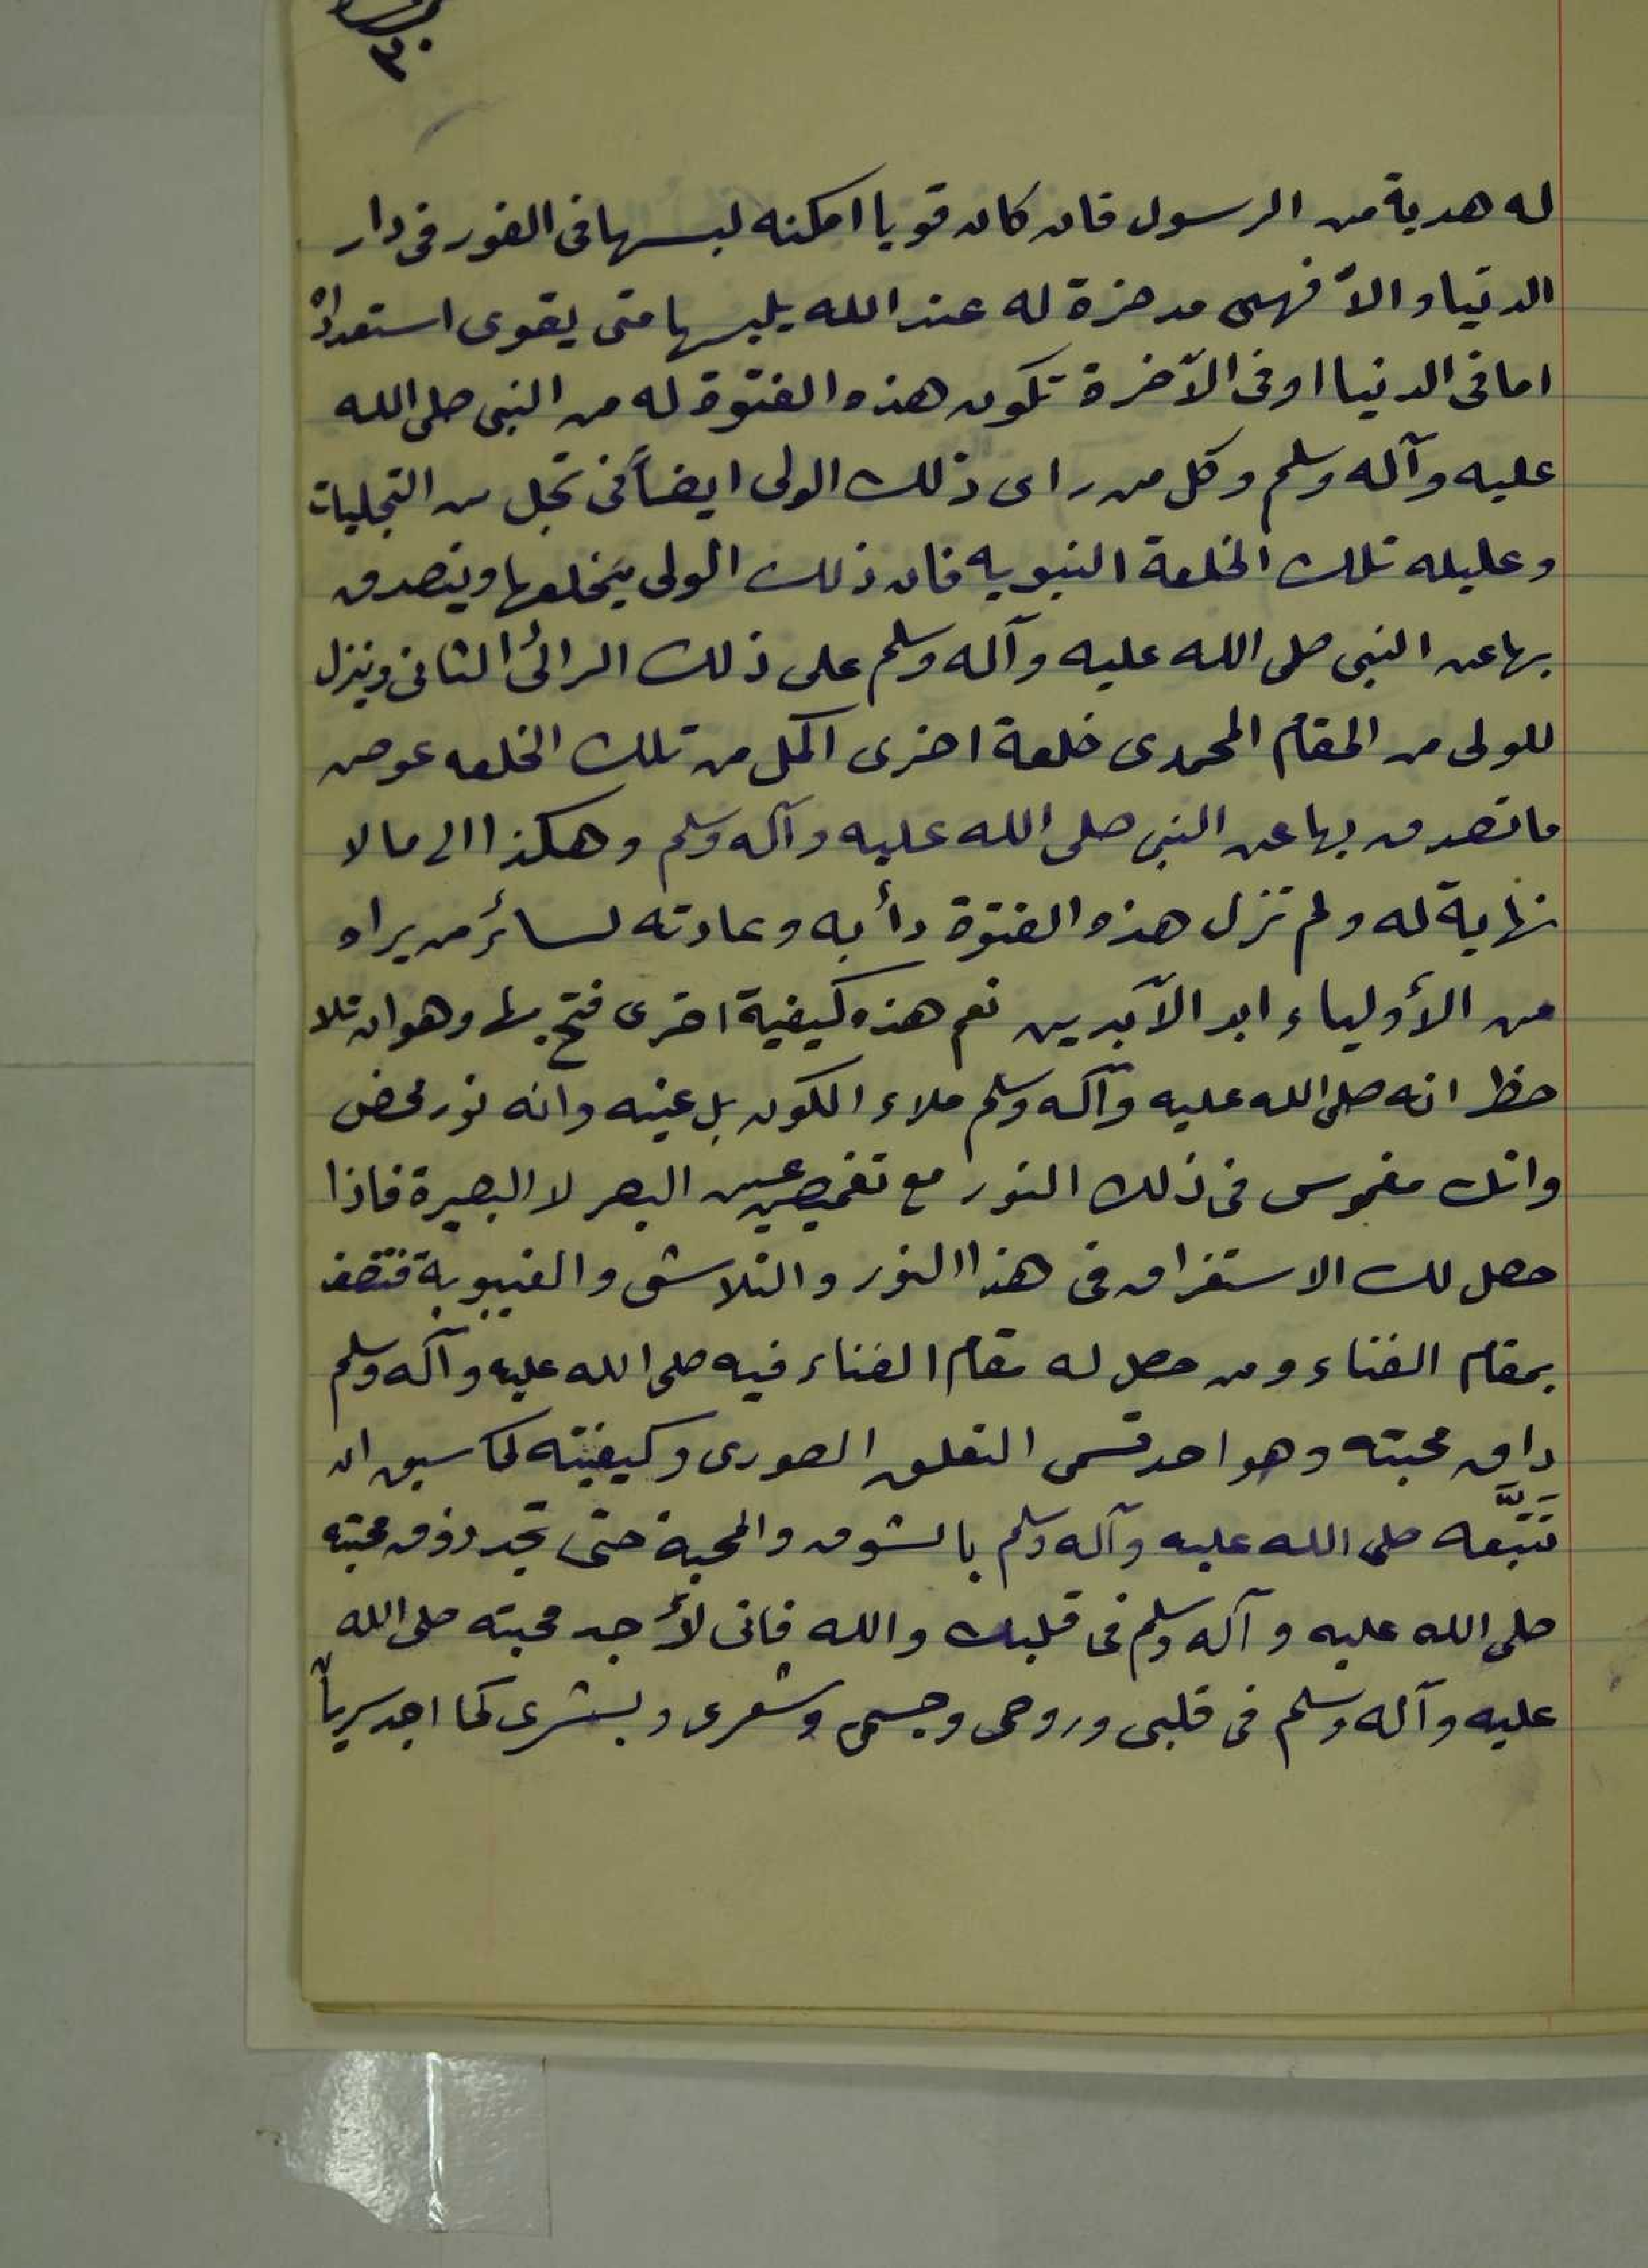 له هدية من الرسول فان كان قويا امكنه لبسها فى الفور فى دار
الدنيا والاّ فهى مدخرة له عند الله يلبسها متى يقوى استعداده
اما فى الدنيا او فى الآخرة تكون هذه الفتوة له من النبى صلى الله
عليه وآله وسلم وكل من راى ذلك الولى ايضاً فى تجل من التجليات
وعليه تلك الخلعة النبويه فان ذلك الولى يخلعها ويتصدق
بها عن النبى صلى الله عليه وآله وسلم على ذلك الرائى الثانى وينزل
للولى من المقام المحمدى خلعة اخرى اكمل من تلك الخلعه عوض
ما تصدق بها عن النبى صلى الله عليه وآله وسلم وهكذا الى مالا
نهاية له ولم تزل هذه الفتوة دأبه وعادته لسائر من يراه
من الأولياء ابد الآبدين نعم هذه كيفية اخرى فتح بها وهو ان تلا
حظ انه صلى الله عليه وآله وسلم ملاء الكون بل عينه وانه نور محض
وانك مغموس فى ذلك النور مع تغميض عين البصر لا البصيرة فاذا
حصل لك الاستغراق فى هذا النور والتلاشى والغيبوبة فتتصف
بمقام الفناء ومن حصل له مقام الفناء فيه صلى الله عليه وآله وسلم
ذاق محبته وهو احد قسمى التعلق الصورى وكيفيته كما سبق ان
تتبّعه صلى الله عليه وآله وسلم بالشوق والمحبة حتى تجد ذوق محبته
صلى الله عليه وآله وسلم فى قلبك والله فانى لأجد محبته صلى الله
عليه وآله وسلم فى قلبى وروحى وجسمى وشعرى وبشرى كما اجد سريان